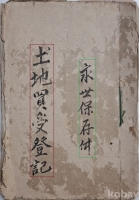 永世保存件
土地買受登記
kobay